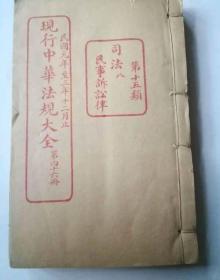 第十五類
司法八
民事訴訟律
民國元年至三年十二月止
現行中華法規大全 第四十六冊